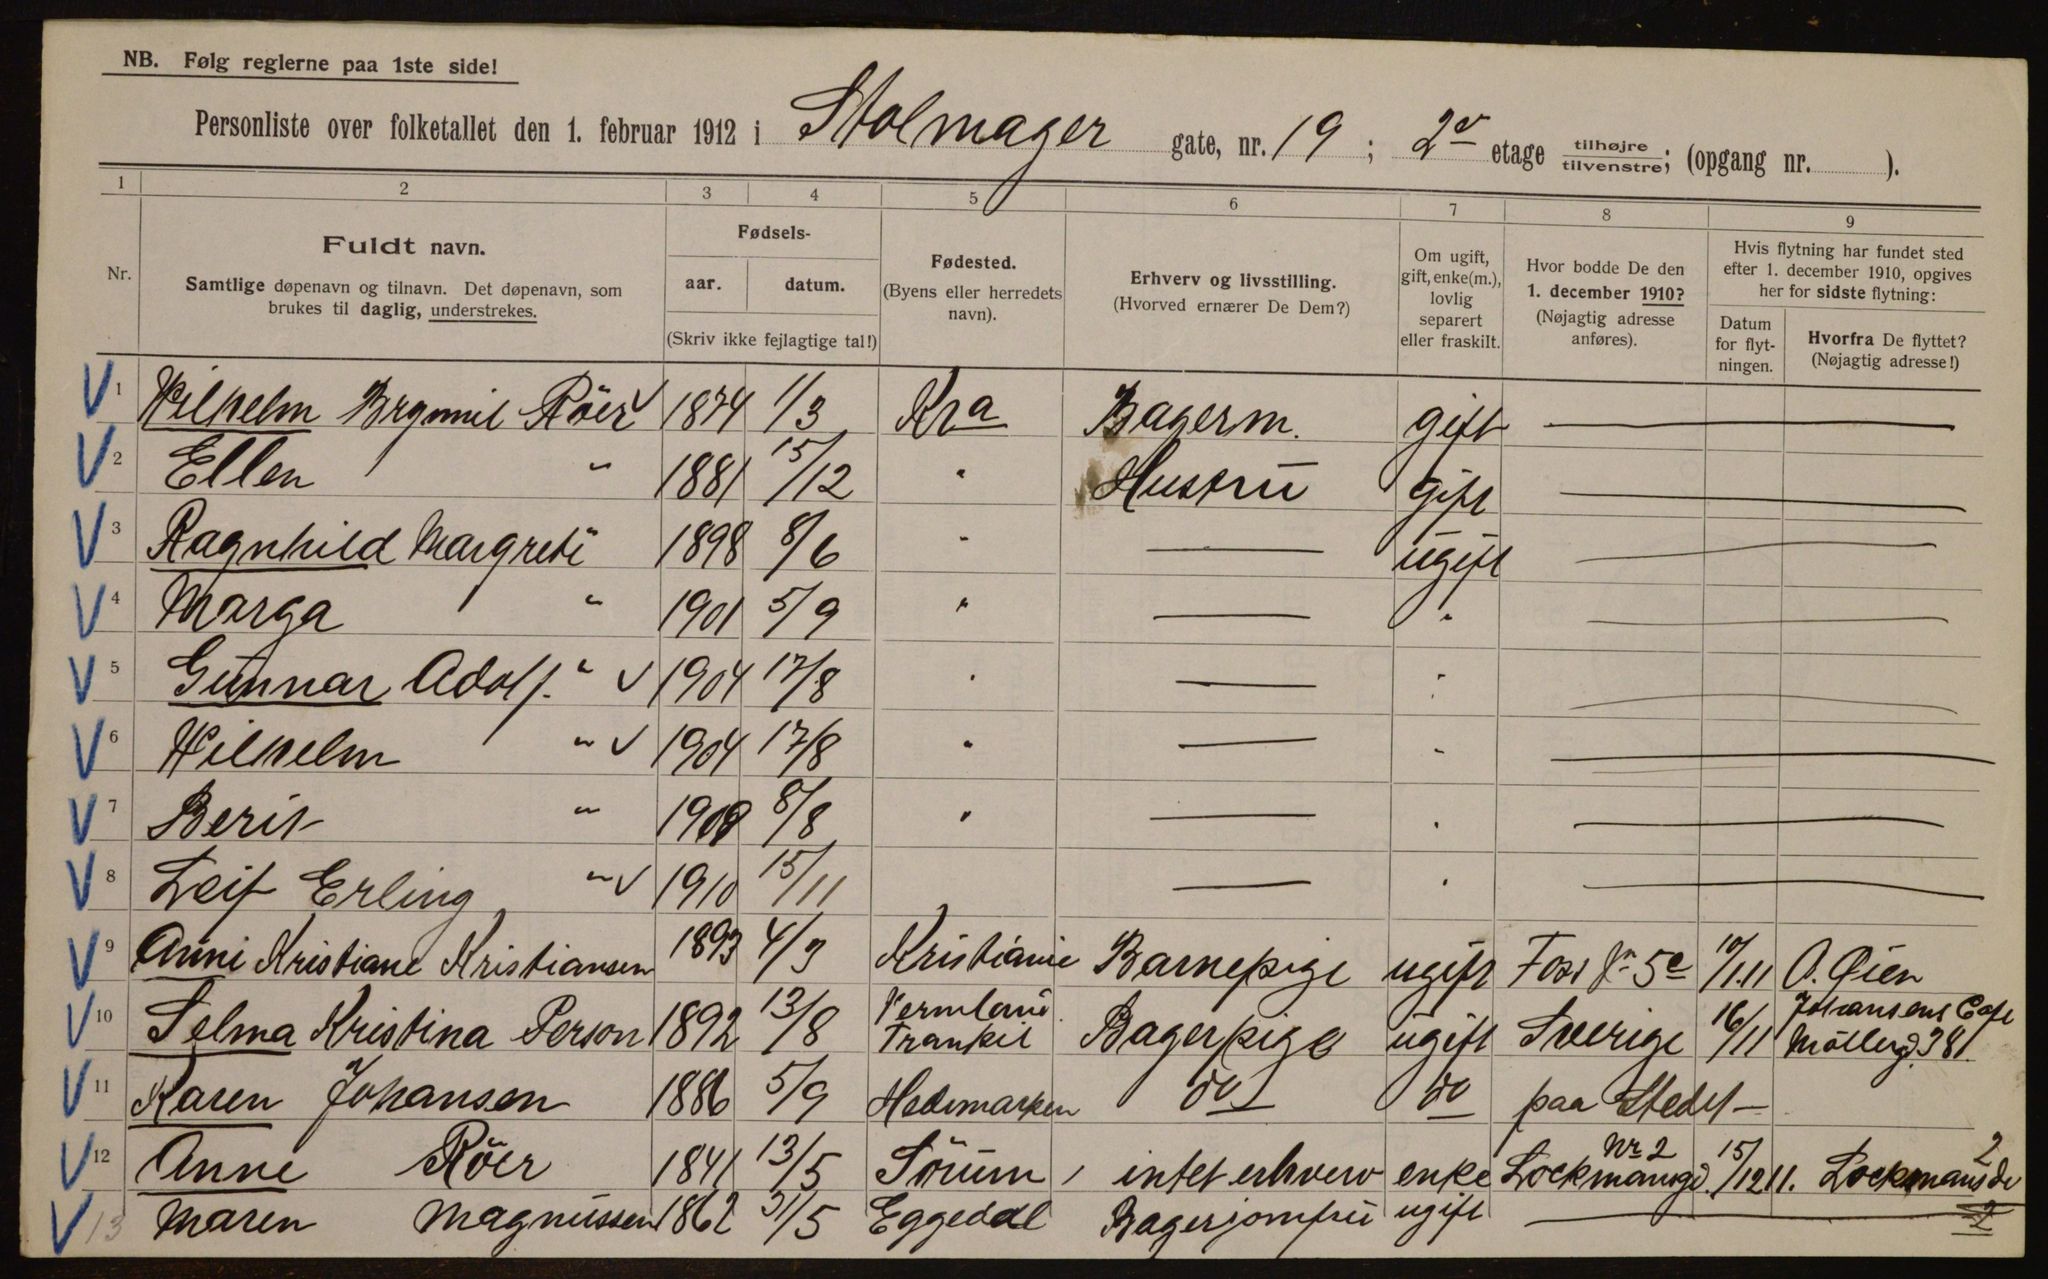 NB. Følg reglerne paa 1ste side!
Personliste over folketallet den 1. februar 1912 i Stolmager gate, nr. 19 ; 2er etage tilhøjre/tilvenstre; (opgang nr. ).
1 2 3 4 5 6 7 8 9
Nr.
Fuldt navn.
Samtlige døpenavn og tilnavn. Det døpenavn, som
brukes til daglig, understrekes.
Fødsels-
aar. datum.
(Skriv ikke fejlagtige tal!)
Fødested.
(Byens eller herredets
navn).
Erhverv og livsstilling.
(Hvorved ernærer De Dem?)
Om ugift,
gift, enke(m.),
lovlig
separert
eller fraskilt.
Hvor bodde De den
1. december 1910?
(Nøjagtig adresse
anføres).
Hvis flytning har fundet sted
efter 1. december 1910, opgives
her for sidste flytning:
Datum
for flyt-
ningen.
Hvorfra De flyttet?
(Nøjagtig adresse!)
V 1 Wilhelm Brynmil Röer √ 1874 1/3 Kra Bagerm. gift —
V 2 Ellen " 1881 15/12 " Hustru gift —
V 3 Ragnhild Margrete " 1898 8/6 " — ugift —
V 4 Marga " 1901 5/9 " — " —
V 5 Gunnar Adolf " √ 1904 17/8 " — " —
V 6 Wilhelm " √ 1904 17/8 " — " —
V 7 Berit " 1909 8/8 " — " —
V 8 Leif Erling " √ 1910 15/11 — " —
V 9 Anni Kristiane Kristiansen 1893 4/3 Kristiania Barnepige ugift Foss 5e 10/1.11 O. Øien
V 10 Selma Kristina Person 1892 13/8 Vermland Trankil Bagerpige ugift Sverige 16/11 Johansens Cafe Möllerg. 38
V 11 Karen Johansen 1886 5/9 Hedemarken do do paa Stedet —
V 12 Anne Röer 1841 13/5 Sörum intet erhverv enke Lockmansgd. Nr 2 15/12 11. Lockmansgd 2
V 13 Maren Magnussen 1862 31/5 Eggedal Bagerjomfru ugift — 2